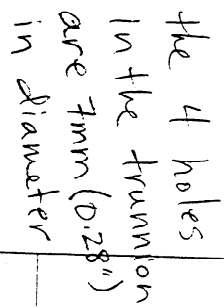 the 4 holes
in the trunnion
are 7mm (0.28")
in diameter